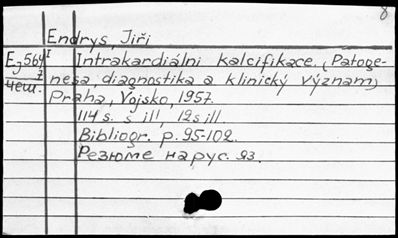 8
Endrys, Jiři
Eg564 I Intrakardiálni kalcifikace. (Patoge-
7 nesa, diagnostika a klinický význam)
чеш. Praha, Vojsko, 1957.
114 s. s ill, 12s ill.
Bibliogr. p. 95-102.
Резюме на рус. яз.